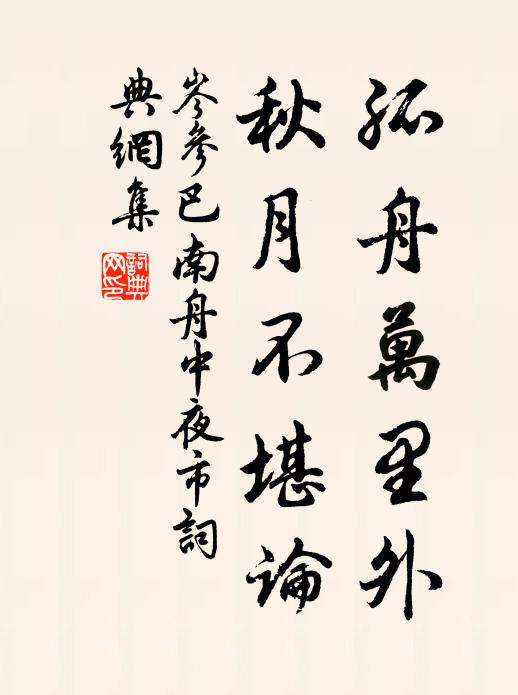 孤舟萬里外
秋月不堪論
岑參巴南舟中夜市詞
典網集
詞典
网印